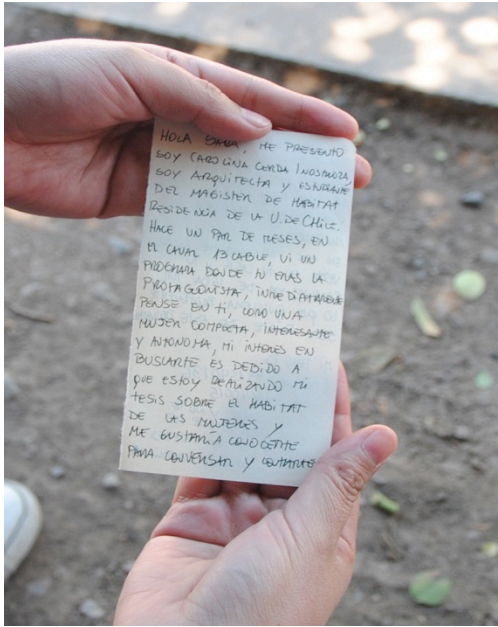 HOLA SARA, ME PRESENTO
SOY CAROLINA CERDA INOSTROZA,
SOY ARQUITECTA Y ESTUDIANTE
DEL MAGISTER DE HABITAT
RESIDENCIA DE LA U. DE CHILE.
HACE UN PAR DE MESES, EN
EL CANAL 13 CABLE, VI UN
PROGRAMA DONDE TU ERAS LA
PROTAGONISTA, INMEDIATAMENTE
PENSE EN TI, COMO UNA
MUJER COMPLETA, INTERESANTE
Y AUTONOMA, MI INTERES EN
BUSCARTE ES DEBIDO A
QUE ESTOY REALIZANDO MI
TESIS SOBRE EL HABITAT
DE LAS MUJERES Y
ME GUSTARÍA CONOCERTE
PARA CONVERSAR Y CONTARTE